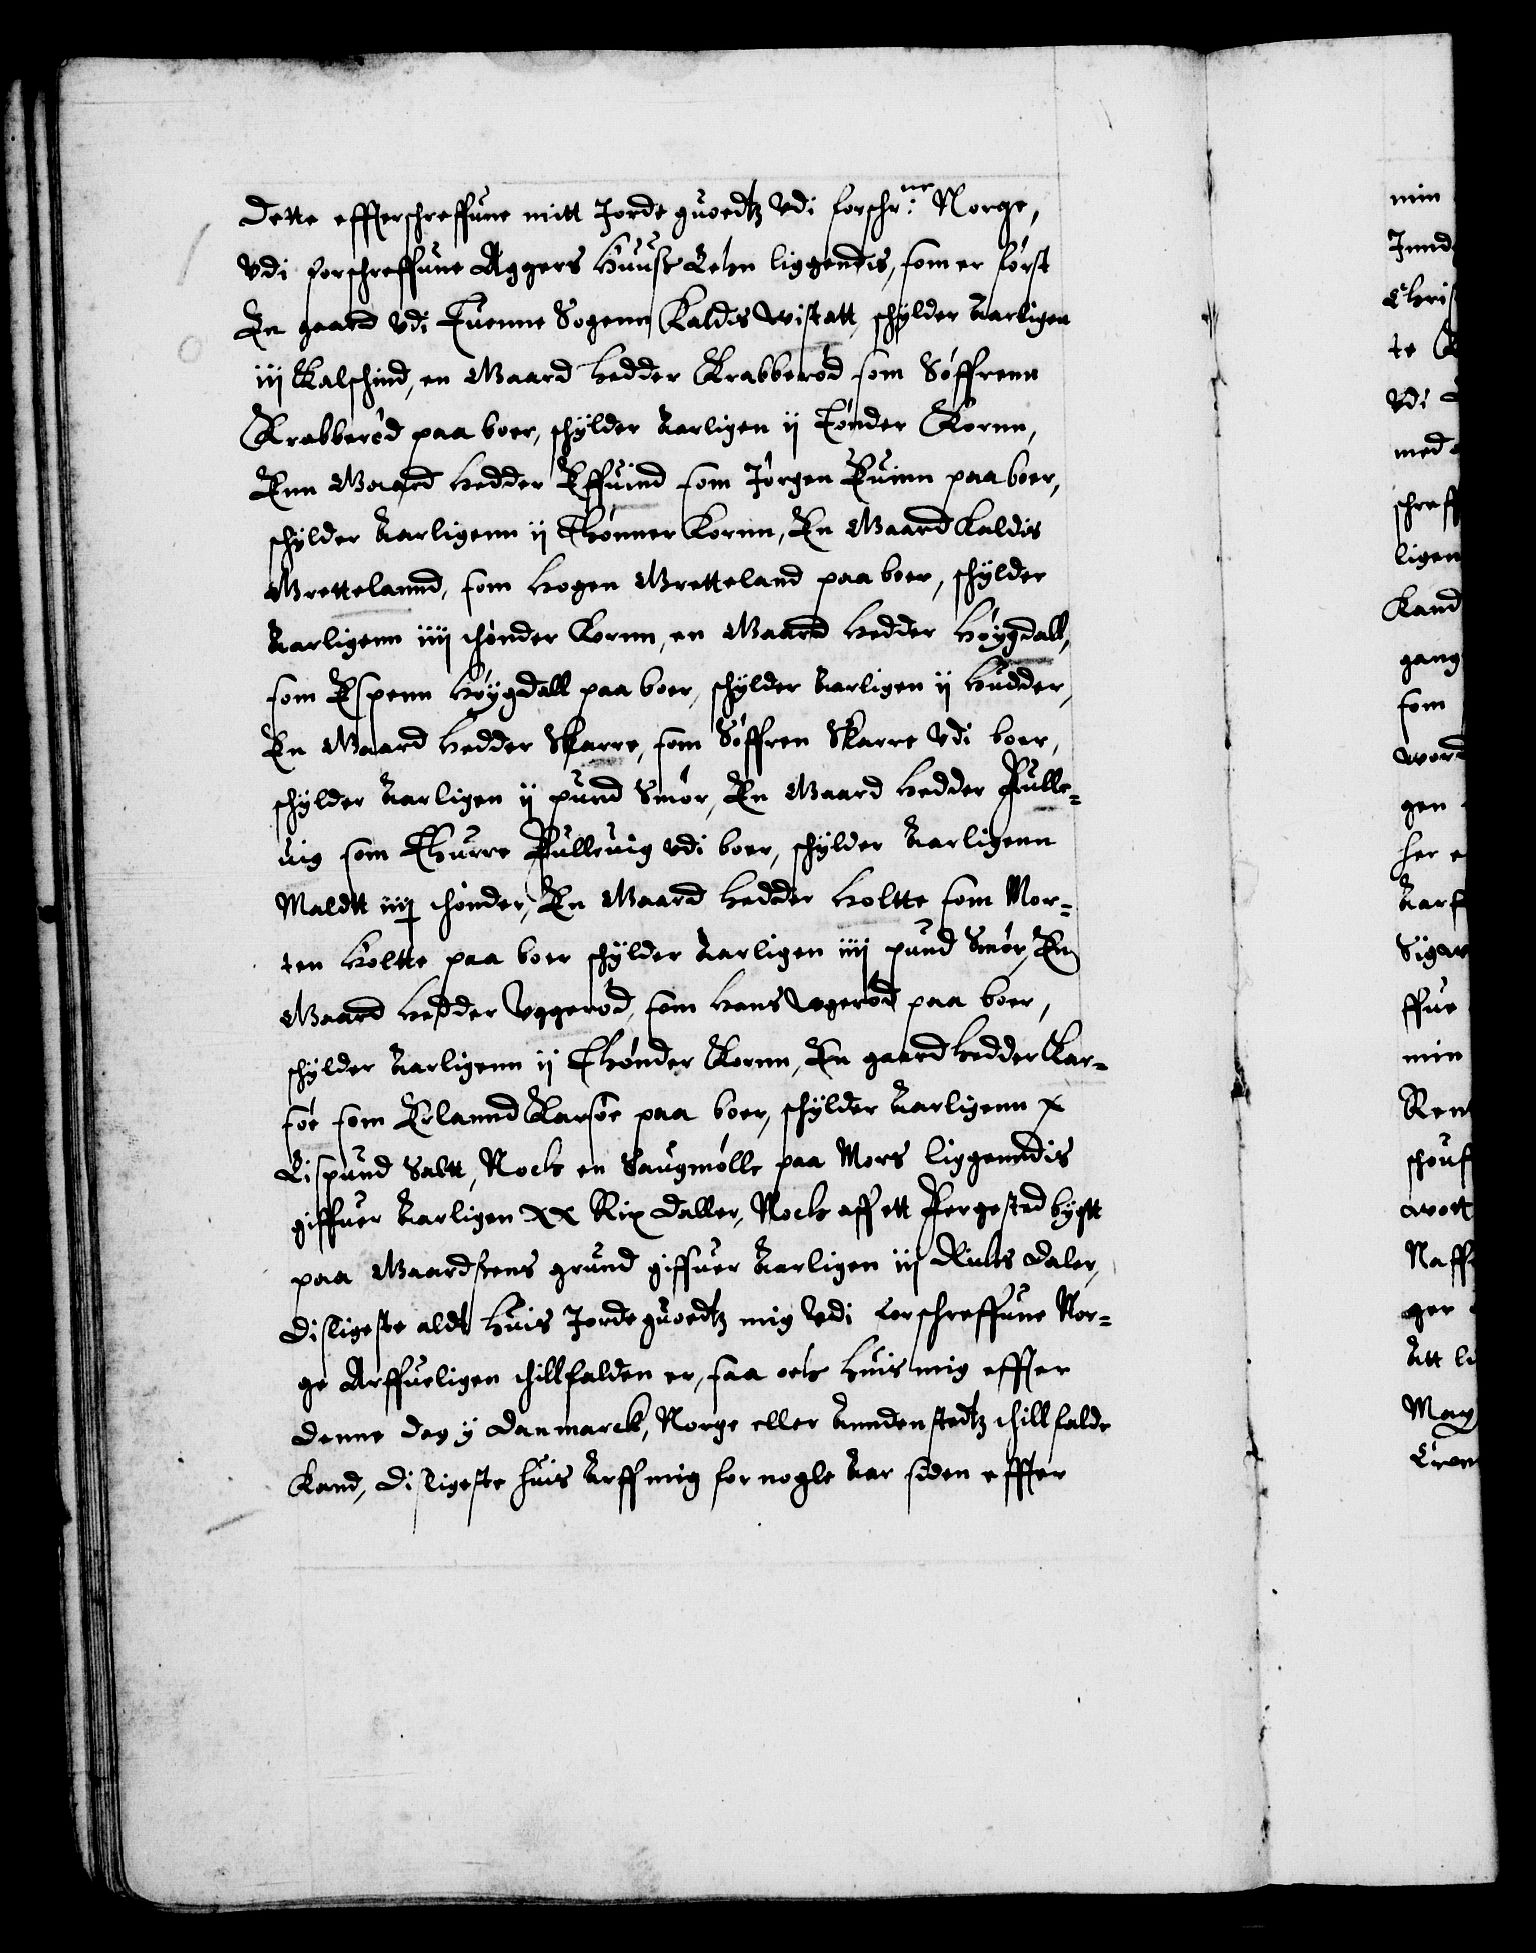 Dette efftterschreffune mitt Jorde guoedtz vdi forschr:ne Norge,
vdi forschreffune Aggers Huuss Lehn liggendis, som er først
En gaard vdi Tuenne Sogenn Kaldis wistatt, schylder Aarligen
iij Kalschind, en Gaard hedder Krabberød som Søffrenn
Krabberød paa boer, schylder Aarligen ij Tønder Kornn,
Enn Gaard hedder Effuind som Jørgen Euinn paa boer,
schylder Aarligenn ij Thønner Kornn, En Gaard Kaldis
Grettelannd, som Hogen Gretteland paa boer, schylder
Aarligenn iiij thønder Kornn, en Gaard hedder Høygdall,
som Espenn Høygdall paa boer, schylder Aarligen ij Hudder,
En Gaard hedder Skarre, som Søffren Skarre vdi boer,
schylder Aarligen ij pund Smør, En Gaard hedder Pulle-
uig som Thurre Pulleuig vdi boer, schylder Aarligenn
Maldtt iiij thønder, En Gaard hedder Holtte som Mor-
ten Holtte paa boer schylder Aarligen iiij pund Smør, En
Gaard hedder Vggerød, som Hans wgerød paa boer,
schylder Aarligenn ij Thønder Kornn, En gaard hedder Kar-
søe som Erlannd Karsøe paa boer, schylder Aarligenn x
Lispund Saltt, Nock en Saugmølle paa Mors liggenndis
giffuer Aarligen xx Rix Daller, Nock aff ett Fergested bygtt
paa Gaardsens grund giffuer Aarligen iij Richs Daler,
Disligeste aldt Huis Jorde guoedtz mig vdi forschreffune Nor-
ge Arffueligen thillfalden er, saa och Huis mig effter
Denne Dag y Danmarck, Norge eller Anndenstedtz thillfalde
Kand, Disligeste huis Arff mig for nogle Aar siden effter
min
Christ
te
vdi
med
schreff
ligen
Kand
gang
som
word
gen
her
ffue
min
Naff
ger
Att
May